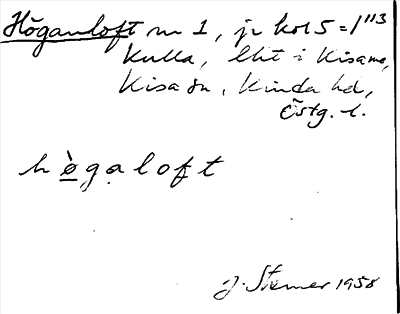 Höganloft nr 1, jr kol 5 = 1¹¹³
Kulla, lht i Kisa sn,
Kisa sn, Kinda hd,
Östg. l.
h ø̀ g ạ l o f t
J. Stemer 1958